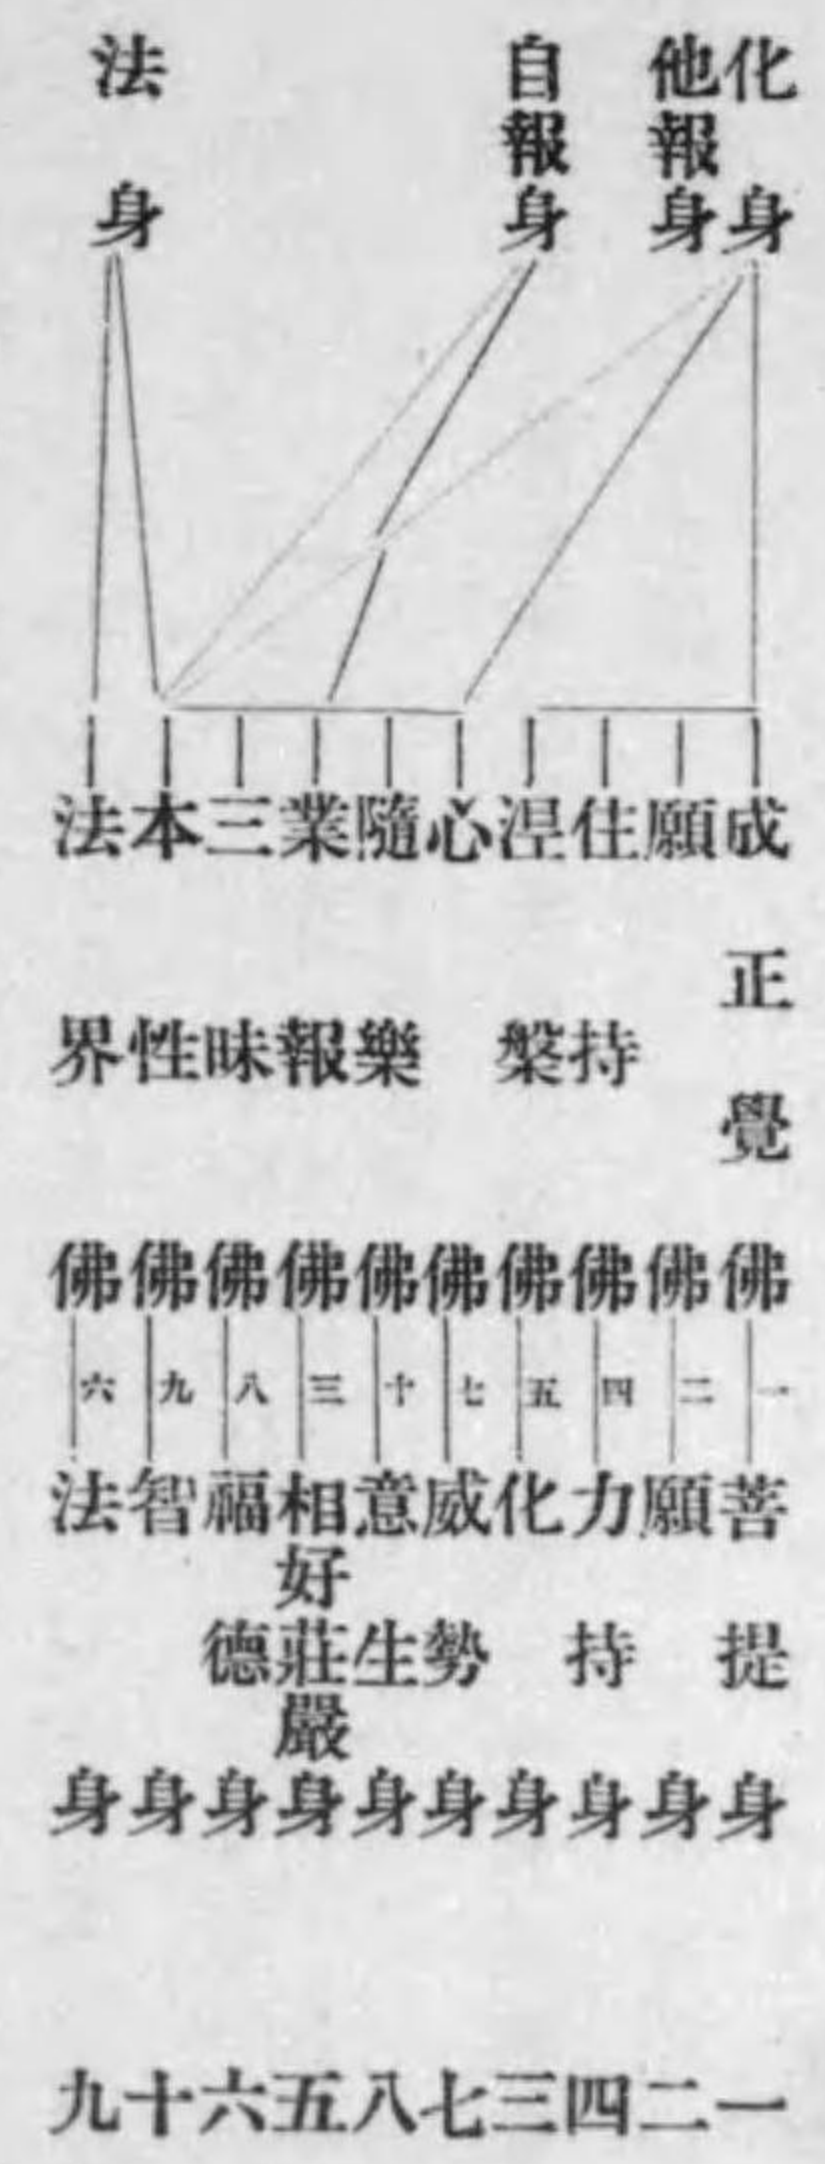 化身
他報身
自報身
法身
成正覺佛 一 菩提身 一
願佛 二 願身 二
住持佛 四 力持身 四
涅槃佛 五 化身 三
心佛 七 威勢身 七
隨樂佛 十 意生身 八
業報佛 三 相好莊嚴身 五
三昧佛 八 福德身 六
本性佛 九 智身 十
法界佛 六 法身 九